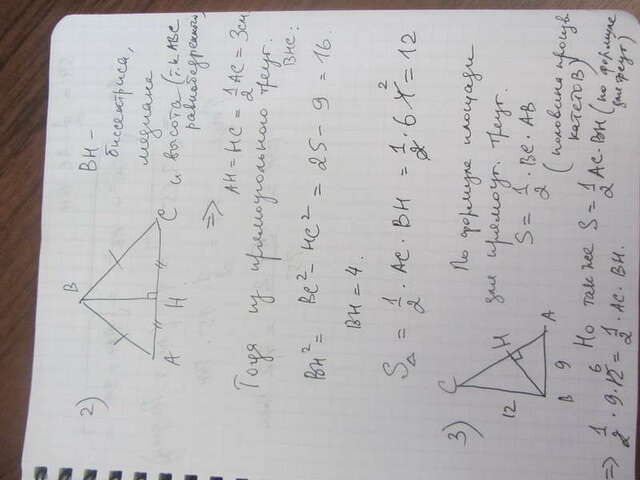 2)
B
A H C
BH –
биссектриса,
медиана
и высота (т.к ABC
равнобедренный)
=> AH = HC = 1/2 AC = 3см
Тогда из прямоугольного треуг.
BHC:
BH² = BC² – HC² = 25 – 9 = 16.
BH = 4.
S△ = 1/2 · AC · BH = 1/2 · 6 · 4 2 = 12
3)
C
H
A
12
B 9
По формуле площади
для прямоуг. треуг.
S = 1/2 · BC · AB
(половина произв
катетов)
Но так же S = 1/2 AC · BH (по формуле
для треуг)
=> 1/2 · 9 · 12 6 = 1/2 · AC · BH.